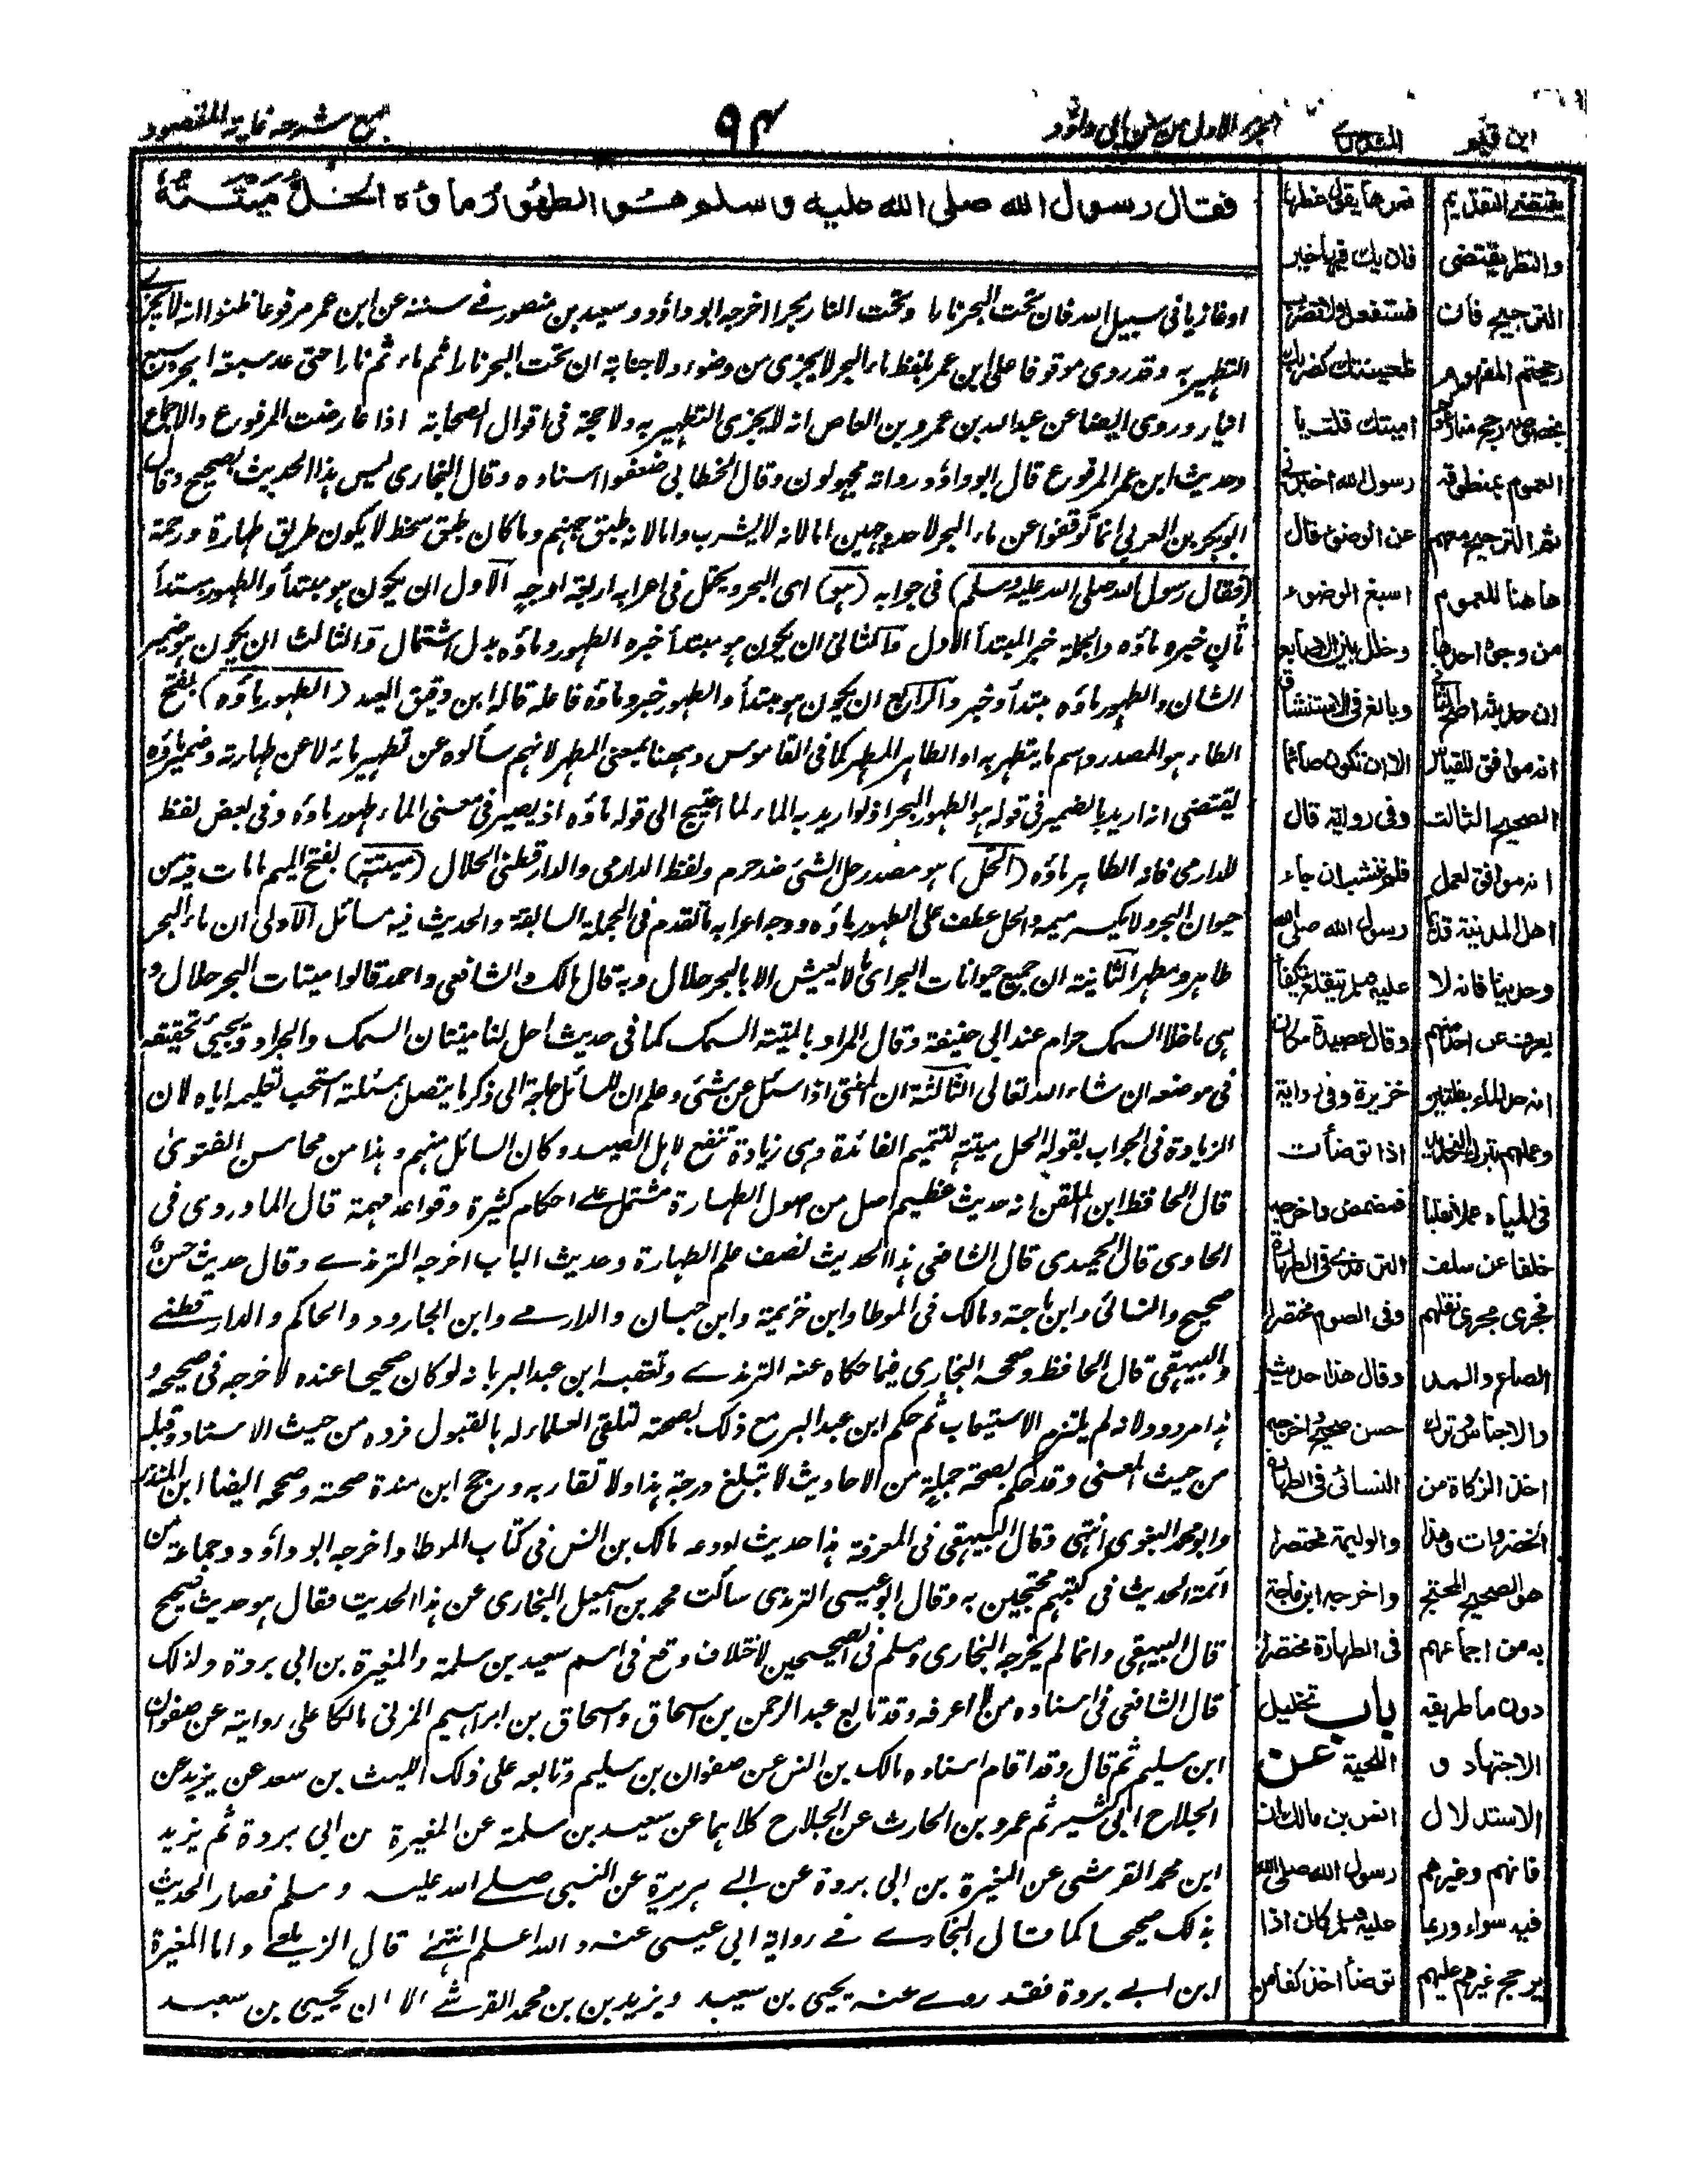 ابن قيم
المنذري
الجزء الاول من سنن ابى داؤد
٩٤
مع شرحه غاية المقصود
فقال رسول الله صلى الله عليه وسلم هو الطهور ماؤه الحل ميتته
او غازيا فى سبيل الله فان تحت البحر نارا وتحت النار بحرا اخرجه ابو داؤد وسعيد بن منصور فى سننه عن ابن عمر مرفوعا ظنوا انه لا يجزى
التطهير به وقد روى موقوفا على ابن عمر بلفظ ماء البحر لا يجزى من وضوء ولا جنابة ان تحت البحر نارا ثم ماء ثم نارا حتى عد سبعة ابحر وسبع
انيار وروى ايضا عن عبد الله بن عمرو بن العاص انه لا يجزى التطهير به ولا حجة فى اقوال الصحابة اذا عارضت المرفوع والاجماع
وحديث ابن عمر المرفوع قال ابو داؤد رواته مجهولون وقال الخطابى ضعفوا اسناده وقال البخارى ليس هذا الحديث بصحيح وقال
ابو بكر بن العربى انما توقفوا عن ماء البحر لاحد وجهين اما لانه لا يشرب واما لانه طبق جهنم وما كان طبق سخط لا يكون طريق طهارة ورحمة
(فقال رسول الله صلى الله عليه وسلم) فى جوابه (هو) اى البحر ويحتمل فى اعرابه اربعة اوجه الاول ان يكون هو مبتدأ والطهور مبتدأ
ثان خبره ماؤه والجملة خبر المبتدأ الاول والثانى ان يكون هو مبتدأ خبره الطهور وماؤه بدل اشتمال والثالث ان يكون هو ضمير
الشان والطهور ماؤه مبتدأ وخبر والرابع ان يكون هو مبتدأ والطهور خبر وماؤه فاعله قاله ابن دقيق العيد (الطهور ماؤه) بفتح
الطاء هو المصدر واسم ما يتطهر به او الطاهر المطهر كما فى القاموس وههنا بمعنى المطهر لانهم سألوه عن تطهير مائه لا عن طهارته وضمير ماؤه
يقتضى انه اريد بالضمير فى قوله هو الطهور البحر اذ لو اريد به الماء لما احتيج الى قوله ماؤه اذ يصير فى معنى الماء طهور ماؤه وفى بعض لفظ
للدارمى فانه الطاهر ماؤه (الحل) هو مصدر حل الشئ ضد حرم ولفظ الدارمى والدارقطنى الحلال (ميتته) بفتح الميم ما مات فيه من
حيوان البحر ولا يكسر ميمه والحل عطف على الطهور ماؤه ووجه اعرابه ما تقدم فى الجملة السابقة والحديث فيه مسائل الاولى ان ماء البحر
طاهر ومطهر الثانية ان جميع حيوانات البحر اى ما لا يعيش الا بالبحر حلال وبه قال مالك والشافعى واحمد قالوا ميتات البحر حلال و
هى ما خلا السمك حرام عند ابى حنيفة وقال المراد بالميتة السمك كما فى حديث احل لنا ميتتان السمك والجراد ويجئ تحقيقه
فى موضعه ان شاء الله تعالى الثالثة ان المفتى اذا سئل عن شئ وعلم ان للسائل حاجة الى ذكر ما يتصل بمسئلته استحب تعليمه اياه لان
الزيادة فى الجواب بقوله الحل ميتته لتتميم الفائدة وهى زيادة تنفع لاهل الصيد وكان السائل منهم وهذا من محاسن الفتوى
قال الحافظ ابن الملقن انه حديث عظيم اصل من اصول الطهارة مشتمل على احكام كثيرة وقواعد مهمة قال الماوردى فى
الحاوى قال الحميدى قال الشافعى هذا الحديث نصف علم الطهارة وحديث الباب اخرجه الترمذى وقال حديث حسن
صحيح والنسائى وابن ماجة ومالك فى الموطا وابن خزيمة وابن حبان والدارمى وابن الجارود والحاكم والدارقطنى
والبيهقى قال الحافظ وصححه البخارى فيما حكاه عنه الترمذى وتعقبه ابن عبد البر بانه لو كان صحيحا عنده لاخرجه فى صحيحه و
هذا مردود لانه لم يلتزم الاستيعاب ثم حكم ابن عبد البر مع ذلك بصحته لتلقى العلماء له بالقبول فرده من حيث الاسناد وقبله
من حيث المعنى وقد حكم بصحة جملة من الاحاديث لا تبلغ درجة هذا ولا تقاربه ورجح ابن مندة صحته وصححه ايضا ابن المنذر
وابو محمد البغوى انتهى وقال البيهقى فى المعرفة هذا حديث اودعه مالك بن انس فى كتاب الموطا واخرجه ابو داؤد وجماعة من
ائمة الحديث فى كتبهم محتجين به وقال ابو عيسى الترمذى سألت محمد بن اسمعيل البخارى عن هذا الحديث فقال هو حديث صحيح
قال البيهقى وانما لم يخرجه البخارى ومسلم فى الصحيحين لاختلاف وقع فى اسم سعيد بن سلمة والمغيرة بن ابى بردة ولذلك
قال الشافعى فى اسناده من لا اعرفه وقد تابع عبد الرحمن بن اسحاق واسحاق بن ابراهيم المزنى مالكا على روايته عن صفوان
ابن سليم ثم قال وقد اقام اسناده مالك بن انس عن صفوان بن سليم وتابعه على ذلك الليث بن سعد عن يزيد عن
الجلاح ابى كثير ثم عمرو بن الحارث عن الجلاح كلاهما عن سعيد بن سلمة عن المغيرة بن ابى بردة ثم يزيد
ابن محمد القرشى عن المغيرة بن ابى بردة عن ابى هريرة عن النبى صلى الله عليه وسلم فصار الحديث
بذلك صحيحا كما قال البخارى فى رواية ابى عيسى عنه والله اعلم انتهى قال الزيلعى واما المغيرة
ابن ابى بردة فقد روى عنه يحيى بن سعيد ويزيد بن بن محمد القرشى الا ان يحيى بن سعيد
قمرها يقل عظها
فان يك فيها خير
فستفعل ولا تضرب
ظعينتك كضربك
اميتك قلت يا
رسول الله اخبرنى
عن الوضوء قال
اسبغ الوضوء
وخلل بين الاصابع
وبالغ فى الاستنشاق
الا ان تكون صائما
وفى رواية قال
فلم ننشب ان جاء
رسول الله صلى الله
عليه وسلم يتقلع يتكفأ
وقال عصيدة مكان
خزيرة وفى رواية
اذا توضأت
فمضمض واخرجه
الترمذى فى الطهارة
وفى الصوم مختصرا
وقال هذا حديث
حسن صحيح واخرجه
النسائى فى الطهارة
والوليمة مختصرا
واخرجه ابن ماجة
فى الطهارة مختصرا
باب تخليل
اللحية عن
انس بن مالك ان
رسول الله صلى الله
عليه وسلم كان اذا
توضأ اخذ كفا من
يقتضى التقديم
والنظر يقتضى
الترجيح فان
رجحتم المفهوم
العموم بمنطوقه
ثم الترجيح معهم
هاهنا للعموم
من وجوه احدها
ان حديثه اصح الثانى
انه موافق للقياس
الصحيح الثالث
انه موافق لعمل
اهل المدينة قديما
وحديثا فانه لا
يعرف عن احد منهم
انه حد الماء بقلتين
وعملهم بترك التحديد
فى المياه عملا نقليا
خلفا عن سلف
فجرى مجرى نقلهم
الصاع والمد
والاجناس وترك
اخذ الزكاة من
الخضراوات وهذا
هو الصحيح المحتج
به من اجماعهم
دون ما طريقه
الاجتهاد و
الاستدلال
فانهم وغيرهم
فيه سواء وربما
يرجح غيرهم عليهم